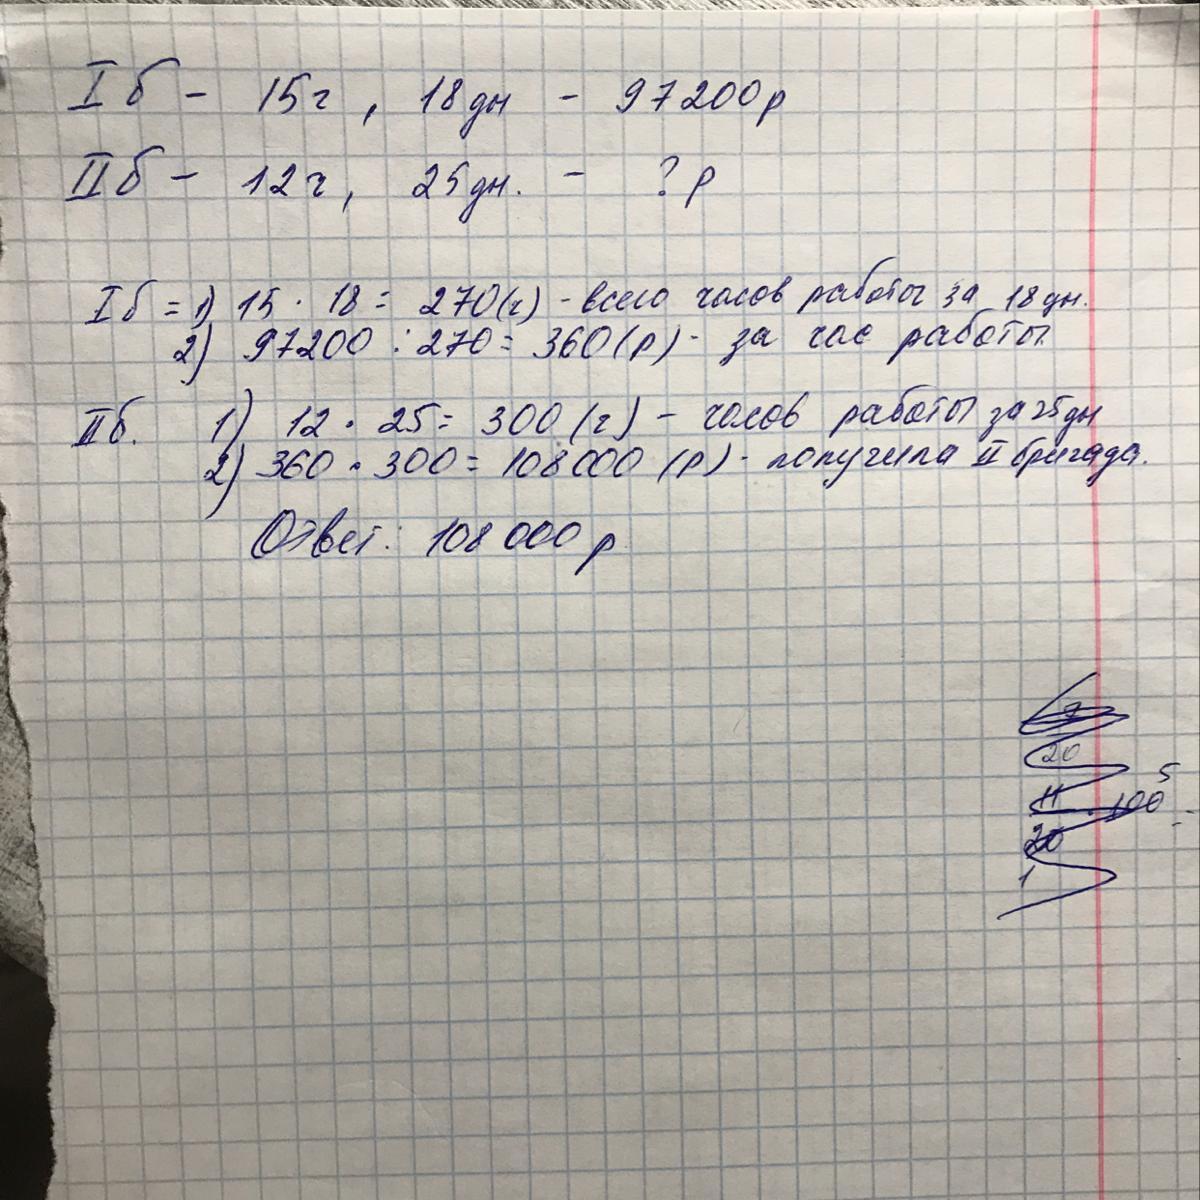 I б - 15ч, 18дн - 97200р
II б - 12ч, 25дн. - ? р
I б = 1) 15 · 18 = 270(ч) - всего часов работы за 18дн.
2) 97200 : 270 = 360(р) - за час работы
II б. 1) 12 · 25 = 300(ч) - часов работы за 25дн
2) 360 · 300 = 108000 (р) - получила II бригада.
Ответ: 108 000 р
20
11 · 100 5
20
1